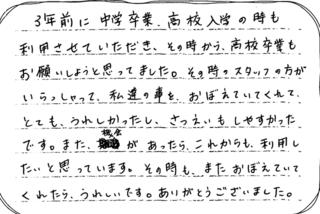 3年前に中学卒業、高校入学の時も
利用させていただき、その時から、高校卒業も
お願いしようと思ってました。その時のスタッフの方が
いらっしゃって、私達の事を、おぼえていてくれて、
とても、うれしかったし、さつえいもしやすかった
です。また、機会があったら、これからも、利用し
たいと思っています。その時も、またおぼえていて
くれたら、うれしいです。ありがとうございました。